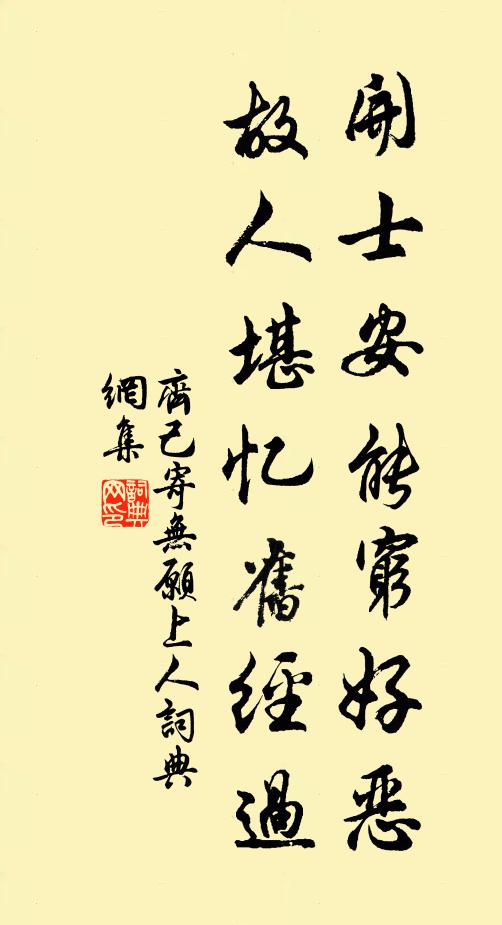 開士安能窮好惡
故人堪忆舊經過
齊己寄無願上人詞典
網集
詞典網印